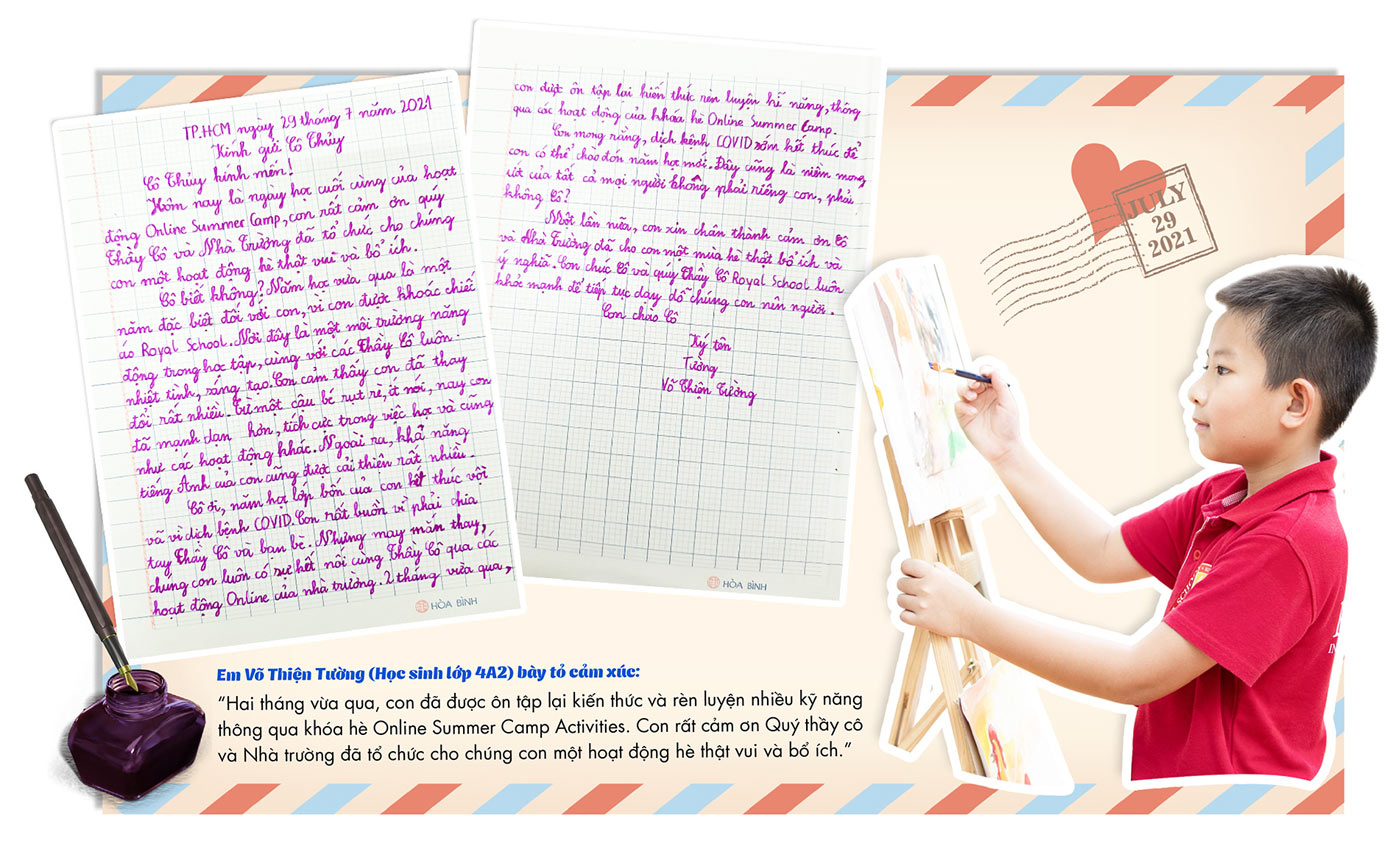 TP.HCM ngày 29 tháng 7 năm 2021
Kính gửi Cô Thủy
Cô Thủy kính mến!
Hôm nay là ngày học cuối cùng của hoạt
động Online Summer Camp, con rất cảm ơn quý
Thầy Cô và Nhà Trường đã tổ chức cho chúng
con một hoạt động hè thật vui và bổ ích.
Cô biết không? Năm học vừa qua là một
năm đặc biệt đối với con, vì con được khoác chiếc
áo Royal School. Nơi đây là một môi trường năng
động trong học tập, cùng với các Thầy Cô luôn
nhiệt tình, sáng tạo. Con cảm thấy con đã thay
đổi rất nhiều. Từ một cậu bé rụt rè, ít nói, nay con
đã mạnh dạn hơn, tích cực trong việc học và cũng
như các hoạt động khác. Ngoài ra, khả năng
tiếng Anh của con cũng được cải thiện rất nhiều.
Cô ơi, năm học lớp bốn của con kết thúc vội
vã vì dịch bệnh COVID. Con rất buồn vì phải chia
tay Thầy Cô và bạn bè. Nhưng may mắn thay,
chúng con luôn có sự kết nối cùng Thầy Cô qua các
hoạt động Online của nhà trường. 2 tháng vừa qua,
HÒA BÌNH
con được ôn tập lại kiến thức rèn luyện kĩ năng, thông
qua các hoạt động của khóa hè Online Summer Camp.
Con mong rằng, dịch bệnh COVID sớm kết thúc để
con có thể chào đón năm học mới. Đây cũng là niềm mong
ước của tất cả mọi người không phải riêng con, phải
không Cô?
Một lần nữa, con xin chân thành cảm ơn Cô
và Nhà Trường đã cho con một mùa hè thật bổ ích và
ý nghĩa. Con chúc Cô và quý Thầy Cô Royal School luôn
khỏe mạnh để tiếp tục dạy dỗ chúng con nên người.
Con chào Cô
Ký tên
Tường
Võ Thiện Tường
HÒA BÌNH
JULY
29
2021
Em Võ Thiện Tường (Học sinh lớp 4A2) bày tỏ cảm xúc:
“Hai tháng vừa qua, con đã được ôn tập lại kiến thức và rèn luyện nhiều kỹ năng
thông qua khóa hè Online Summer Camp Activities. Con rất cảm ơn Quý thầy cô
và Nhà trường đã tổ chức cho chúng con một hoạt động hè thật vui và bổ ích.”